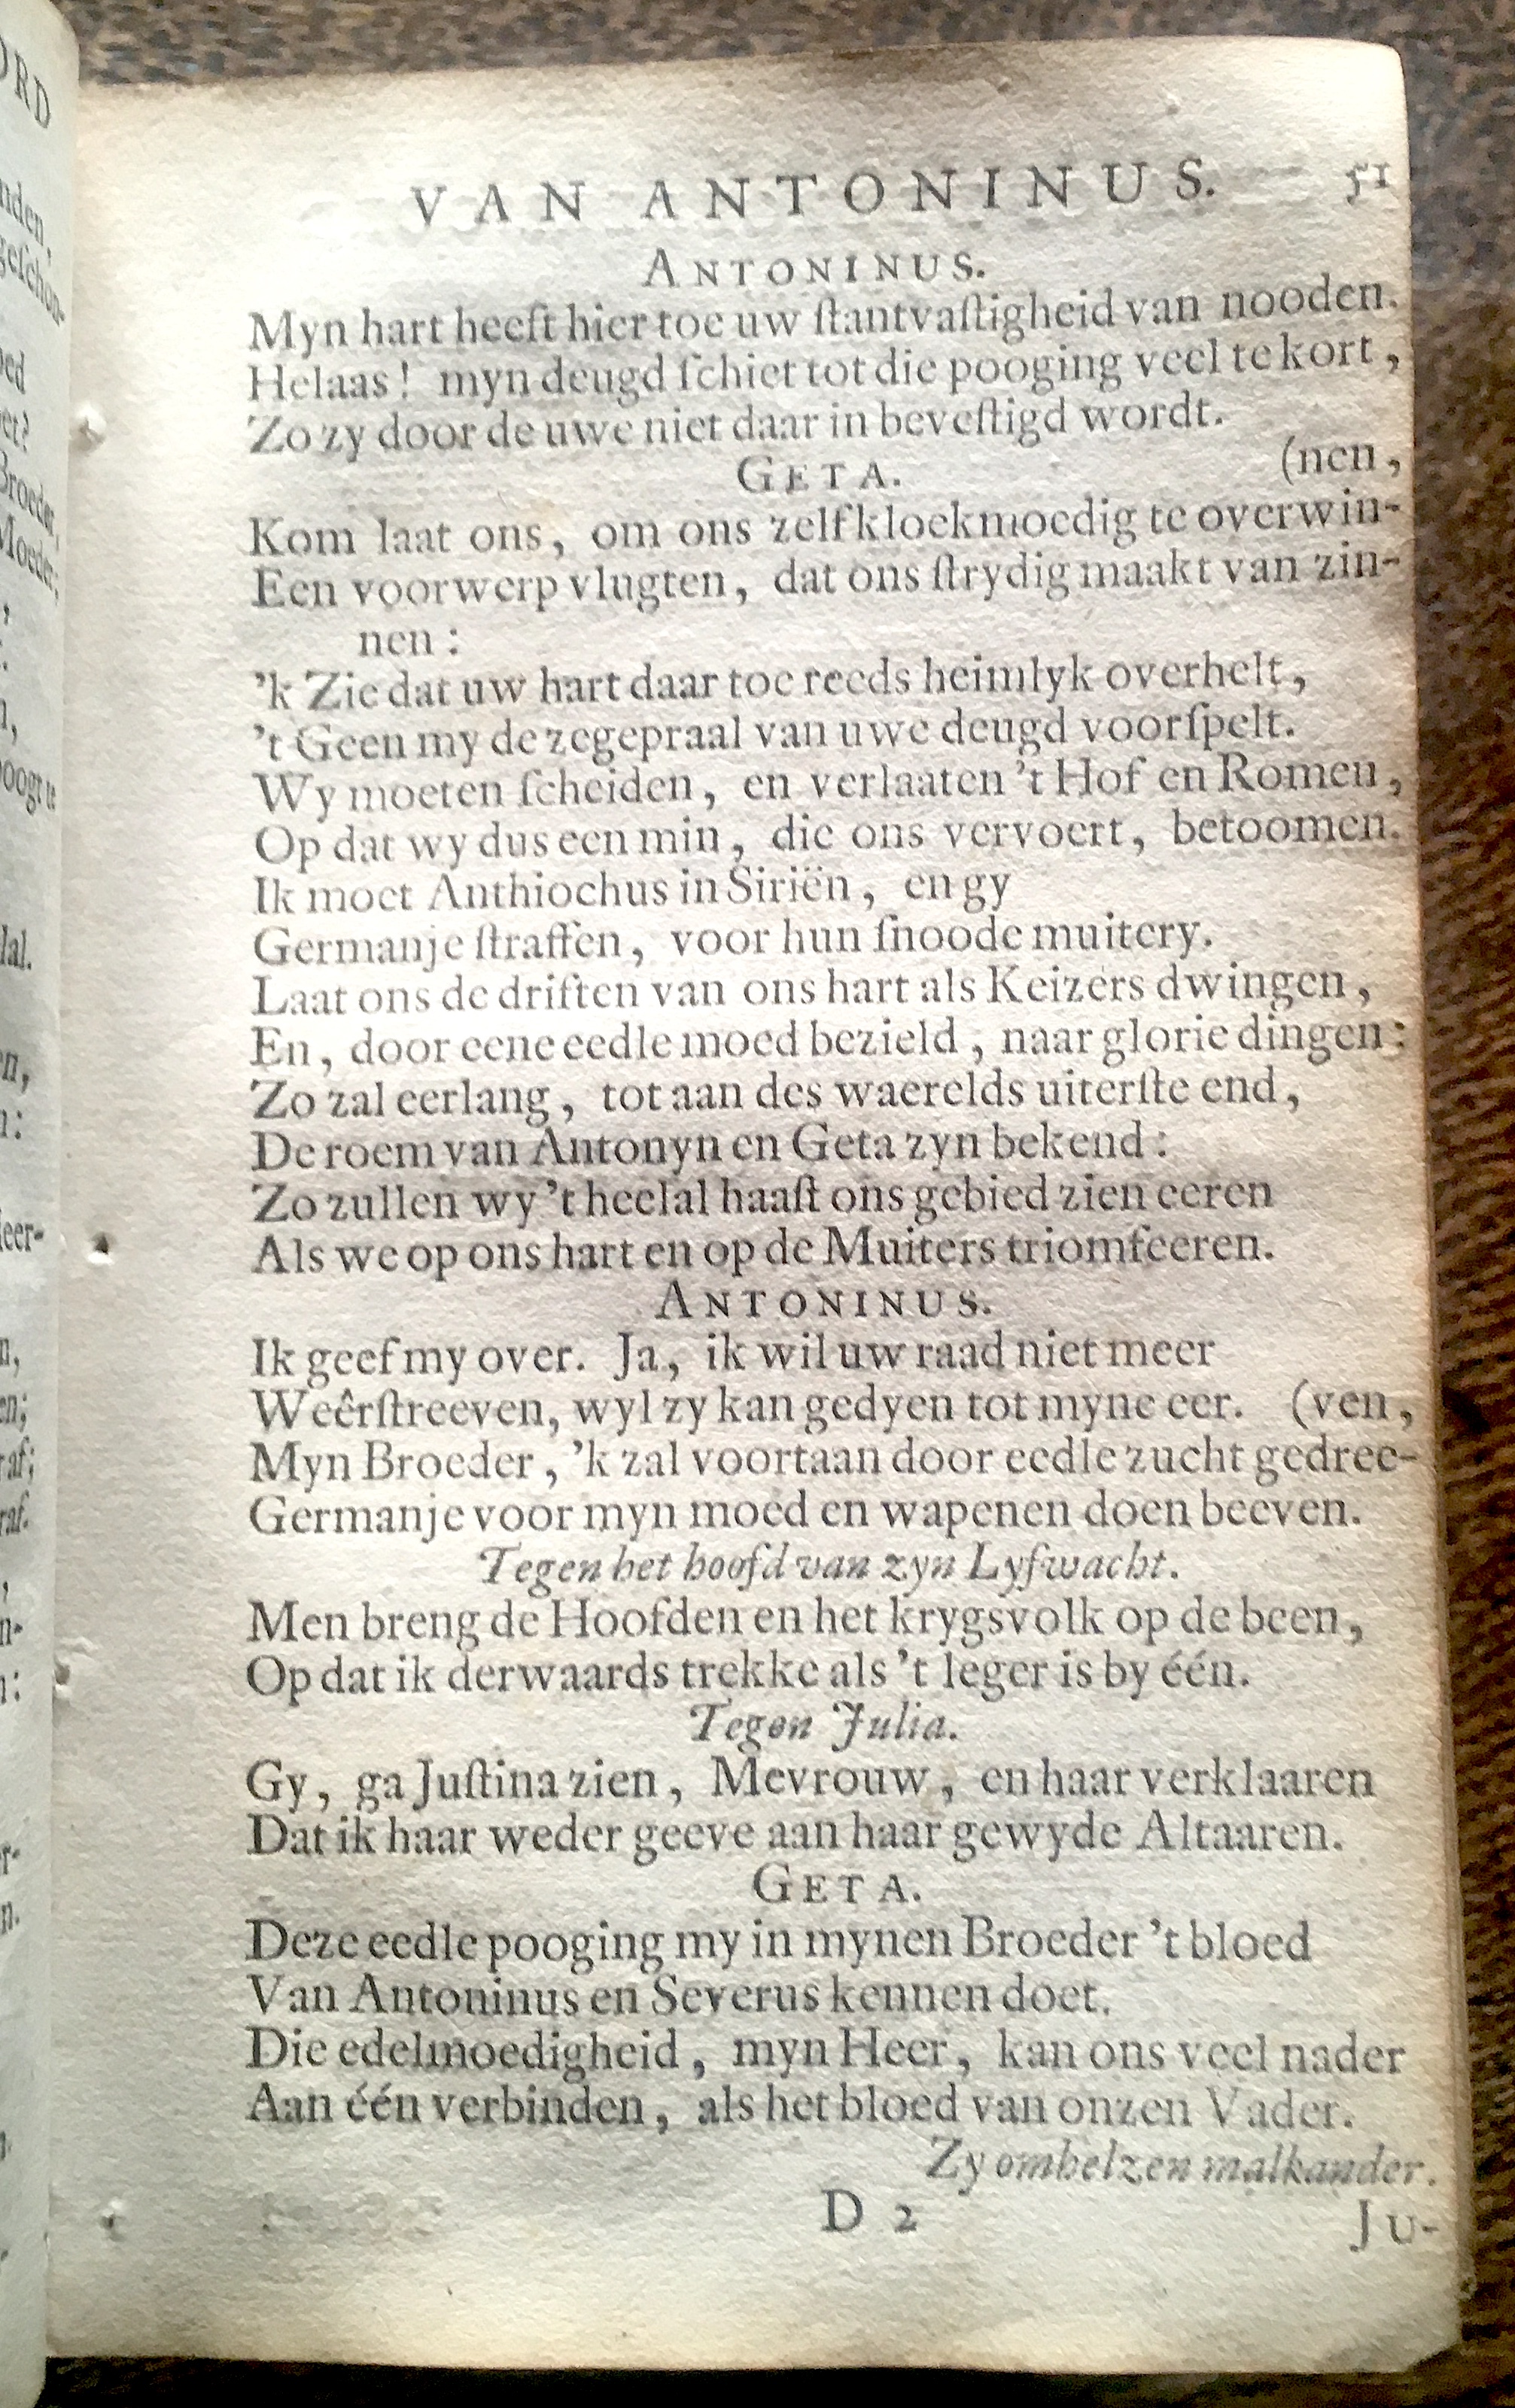 VAN ANTONINUS. 51
ANTONINUS.
Myn hart heeft hier toe uw ſtantvaſtigheid van nooden.
Helaas! myn deugd ſchiet tot die pooging veel te kort,
Zo zy door de uwe niet daar in beveſtigd wordt.
GETA. (nen,
Kom laat ons, om ons zelf kloekmoedig te overwin-
Een voorwerp vlugten, dat ons ſtrydig maakt van zin-
nen:
'k Zie dat uw hart daar toe reeds heimlyk overhelt,
't Geen my de zegepraal van uwe deugd voorſpelt.
Wy moeten ſcheiden, en verlaaten 't Hof en Romen,
Op dat wy dus een min, die ons vervoert, betoomen.
Ik moet Anthiochus in Siriën, en gy
Germanje ſtraffen, voor hun ſnoode muitery.
Laat ons de driften van ons hart als Keizers dwingen,
En, door eene eedle moed bezield, naar glorie dingen:
Zo zal eerlang, tot aan des waerelds uiterſte end,
De roem van Antonyn en Geta zyn bekend:
Zo zullen wy 't heelal haaſt ons gebied zien eeren
Als we op ons hart en op de Muiters triomfeeren.
ANTONINUS.
Ik geef my over. Ja, ik wil uw raad niet meer
Weêrſtreeven, wyl zy kan gedyen tot myne eer. (ven,
Myn Broeder, 'k zal voortaan door eedle zucht gedree-
Germanje voor myn moed en wapenen doen beeven.
Tegen het hoofd van zyn Lyfwacht.
Men breng de Hoofden en het krygsvolk op de been,
Op dat ik derwaards trekke als 't leger is by één.
Tegen Julia.
Gy, ga Juſtina zien, Mevrouw, en haar verklaaren
Dat ik haar weder geeve aan haar gewyde Altaaren.
GETA.
Deze eedle pooging my in mynen Broeder 't bloed
Van Antoninus en Severus kennen doet.
Die edelmoedigheid, myn Heer, kan ons veel nader
Aan één verbinden, als het bloed van onzen Vader.
Zy omhelzen malkander.
D 2 JU-